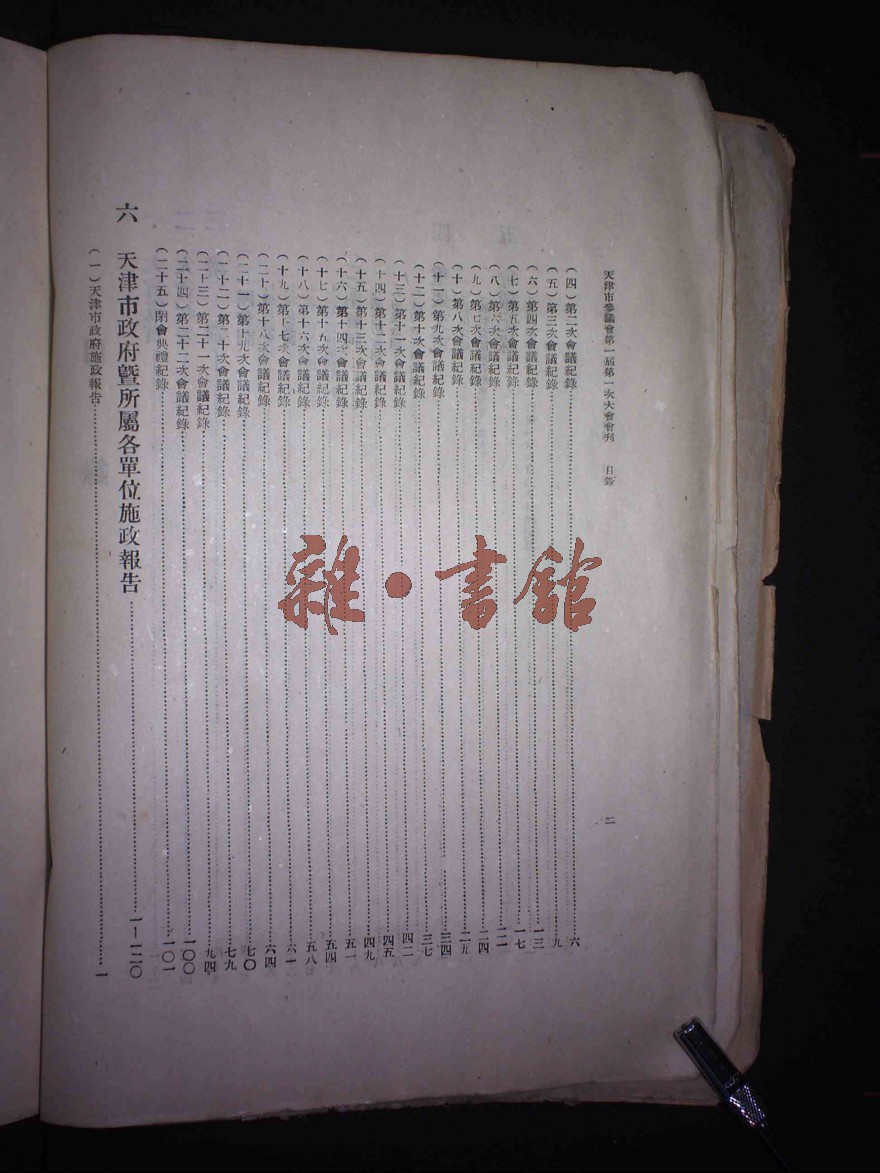 天津市參議會第一屆第一次大會會刊 目錄 二
(四)第二次會議紀錄……六
(五)第三次會議紀錄……九
(六)第四次會議紀錄……一三
(七)第五次會議紀錄……一七
(八)第六次會議紀錄……二一
(九)第七次會議紀錄……二四
(十)第八次會議紀錄……二九
(十一)第九次會議紀錄……三四
(十二)第十次會議紀錄……三七
(十三)第十一次會議紀錄……四二
(十四)第十二次會議紀錄……四五
(十五)第十三次會議紀錄……四九
(十六)第十四次會議紀錄……五一
(十七)第十五次會議紀錄……五四
(十八)第十六次會議紀錄……五八
(十九)第十七次會議紀錄……六一
(二十)第十八次會議紀錄……六四
(二十一)第十九次會議紀錄……七〇
(二十二)第二十次會議紀錄……七九
(二十三)第二十一次會議紀錄……九四
(二十四)第二十二次會議紀錄……一〇〇
(二十五)閉會典禮紀錄……一〇一
六 天津市政府暨所屬各單位施政報告……一—一二〇
(一)天津市政府施政報告……一
雜·書館